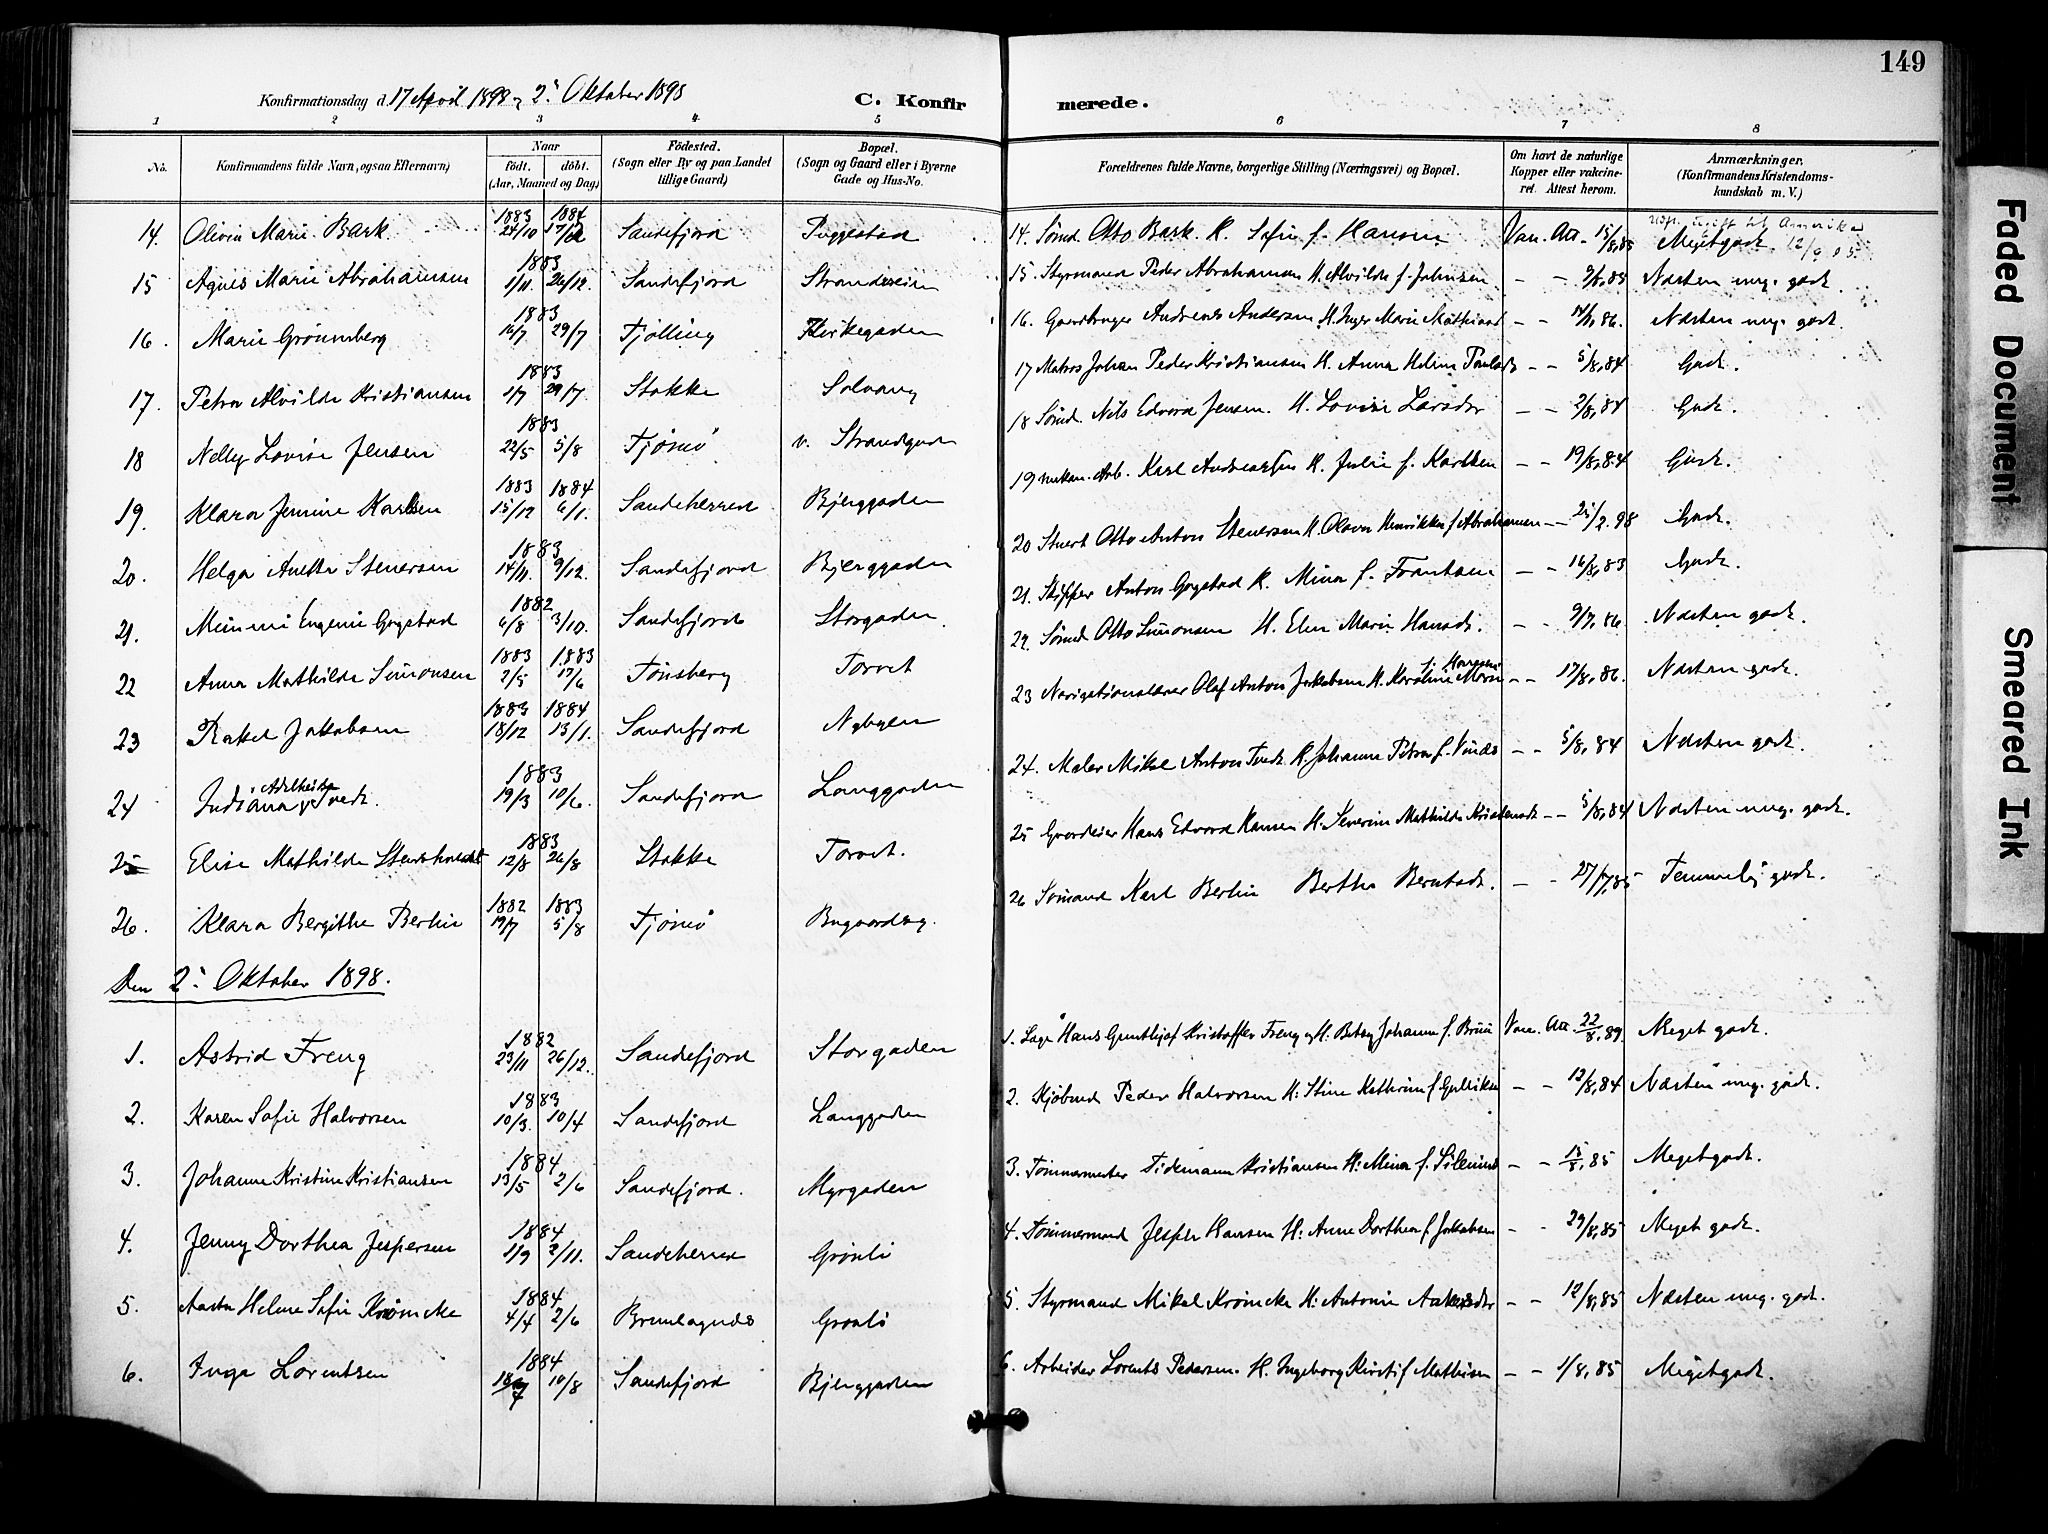 149
Konfirmationsdag d. 17 April 1898, 2. Oktober 1898
C. Konfirmerede.
1 2 3 4 5 6 7 8
No. Konfirmandens fulde Navn, ogsaa Efternavn) Naar födt. döbt. (Aar, Maaned og Dag) Födested. (Sogn eller By og paa Landet tillige Gaard) Bopæl. (Sogn og Gaard eller i Byerne Gade og Hus-No. Forældrenes fulde Navne, borgerlige Stilling (Næringsvei) og Bopæl. Om havt de naturlige Kopper eller vakcineret. Attest herom. Anmærkninger. (Konfirmandens Kristendomskundskab m. V.)
14. Olivia Marie Bark 1883 24/10 1884 Sandefjord Puggestad 14. Sømd. Otto Bark. H. Sofie f. Hansen Vac. Att. 15/8,85 Megetgodt. 12/9 05
15 Agnes Marie Abrahamsen 1883 1/11. 26/12. Sandefjord Strandveien 15. Styrmand Peder Abrahamsen H. Alvilde f. Johnsen - - Næsten mg. godt.
16. Marie Grønneberg 1883 16/7 29/7 Tjølling Kirkegaden 16. Gaardbruger Andreas Andersen H. Inger Marie - - Næsten mg. godt.
17. Petra Alvilde Kristiansen 1883 1/7 29/7. Stokke Solvang 17 Matros Johan Peder Kristiansen H. Anna Helene Paulsdr - - 5/8,84 Godt.
18 Nelly Lovise Jensen 1883 22/5 5/8 Tjømø v. Strandgaden 18 Sømd. Nils Edvard Jensen. H. Lovise Larsdr - - 2/8,84 Godt.
19. Klara Jensine Karlsen 1883 15/12 1884 6/1. Sandeherred Bjerggaden 19 mekan. Arb. Karl Andreassen H. Julie f. Karlsen - - 19/8,84 Godt.
20. Helga Anette Stenersen 1883 14/11. 9/12. Sandefjord Bjerggaden 20 Stuert Otto Anton Stenersen H. Olava Henrikke f. Abrahamsen - - 25/2.98 Godt.
21. Mimmi Eugenie Gogstad 1882 6/8 3/10. Sandefjord Storgaden. 21. Skipper Anton Gogstad H. Mina f. Frantsen - - 16/8,83 Godt.
22 Anna Mathilde Simonsen 1883 2/5 1883 17/6 Tønsberg Torvet 22. Sømd Otto Simonsen H. Elen Marie Hansdr. - - 9/7,86. Næsten godt.
23 Rakel Jakobsen 1883 18/12 1884 13/1. Sandefjord Nybyen 23 Navigationslærer Olaf Anton Jakobsen H. Karoline Marie - - 17/8,86. Næsten godt.
24 Indiana Adelheide Tvedt. 1883 19/3 10/6. Sandefjord Langgaden 24. Maler Mikal Anton Tvedt. H. Johanne Petra f. - - 5/8,84 Næsten godt.
25 Elise Mathilde 1883 12/8 26/8 Stokke Torvet. 25 Gaardeier Hans Edvard Hansen H. Severine Mathilde - - 5/8,84 Næsten mg. godt.
26. Klara Bergithe Berlin 1882 19/7 1883 5/8 Tjømø Bugaardsv. 26 Sømand Karl Berlin Berthe Berntsdr. - - 27/7,85 Temmelig godt.
Den 2. Oktober 1898.
1. Astrid Freng 1882 23/11 26/12. Sandefjord Storgaden 1. Læge Hans Kristoffer Freng og H. Betsy Johanne f. Bruu Vac. Att. 22/8,89. Meget godt.
2. Karen Sofie Halvorsen 1883 10/3. 10/4 Sandefjord Langgaden 2. Kjøbmd Peder Halvorsen H. Stine Kathrine f. Gulliksen - - 12/8,84 Næsten mg. godt.
3. Johanne Kristine Kristiansen 1884 13/5 2/6 Sandefjord. Myrgaden 3. Tømmermester Tidemann Kristiansen H. Mina f. - - 15/8,85 Megetgodt.
4. Jenny Dorthea Jespersen 1884 1/9 2/11. Sandeherred Grønli 4. Tømmermand Jesper Hansen H. Anne Dorthea f. Jakobsen - - 29/8,85 Meget godt.
5. Aasta Helene Sofie Krømcke 1884 4/4 2/6 Brunlagnæs Grønli 5. Styrmand Mikal Krømcke H. Antonie Andersdr - - 12/8,85 Næsten mg. godt.
6. Inga Lorentsen 1884 10/8 Sandefjord Bjerggaden 6. Arbeider Lorents Pedersen. H. Ingeborg Kirsti f Mathisen - - 1/8,85 Megetgodt.
Faded Document
Smeared Ink